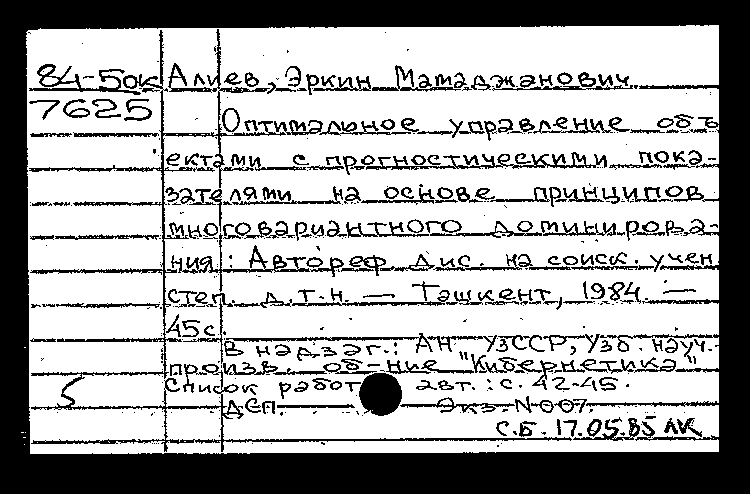 84-5ок Алиев, Эркин Мамаджанович
7625
Оптимальное управление объ
ектами с прогностическими пока-
зателями на основе принципов
многовариантного доминирова-
ния: Автореф. дис. на соиск. учен.
степ. д.т.н. — Ташкент, 1984. —
45с.
В надзаг.: АН УзССР, Узб. науч.-
произв. об-ние "Кибернетика"
Список работ авт.: с. 42-45.
5
ДСП. Экз. N 007.
С.Б. 17.05.85 ЛК